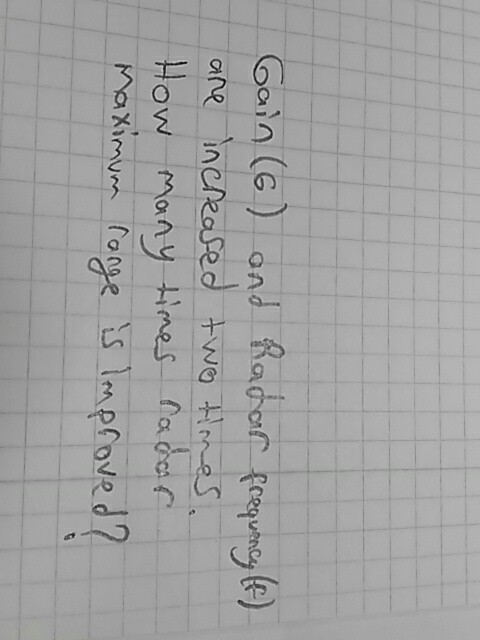 Gain (G) and Radar frequency (f)
are increased two times.
How many times radar
maximum range is improved?